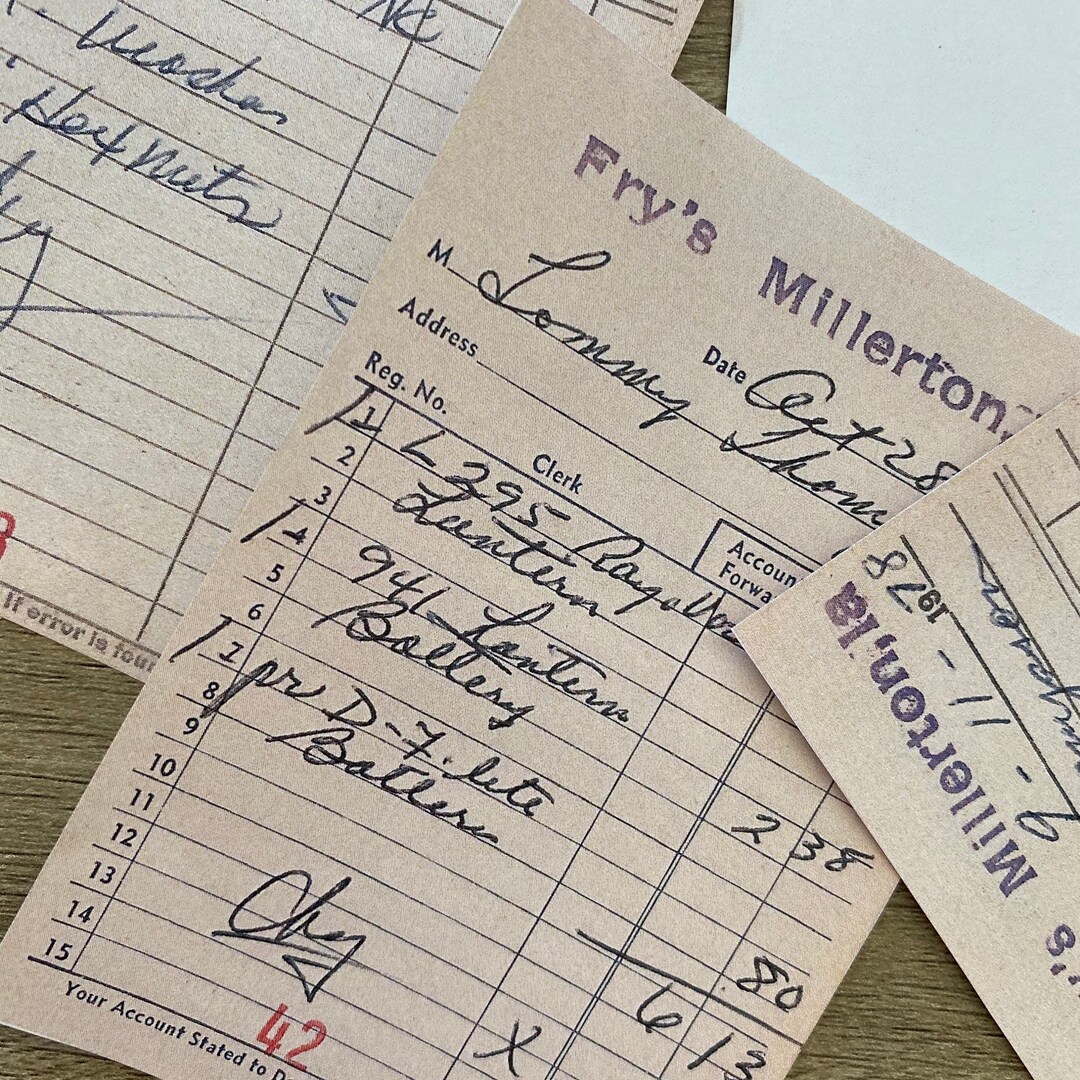 Washer
Hex Nuts
If error is four
Fry's Millerton,
M Tommy Thom
Date Oct 28
Address
Reg. No.
Clerk
Accoun
Forwa
1 L 295 Rayolla
2 Lantern
3
4 941 Lantern
5 Battery
6
7 pr D-7. lite
8 Battery
9
10
11
12
13
14
15
2 38
80
6 13
X
Chg
42
Your Account Stated to D
1978
9 - 11 -
's Millerton, Ia